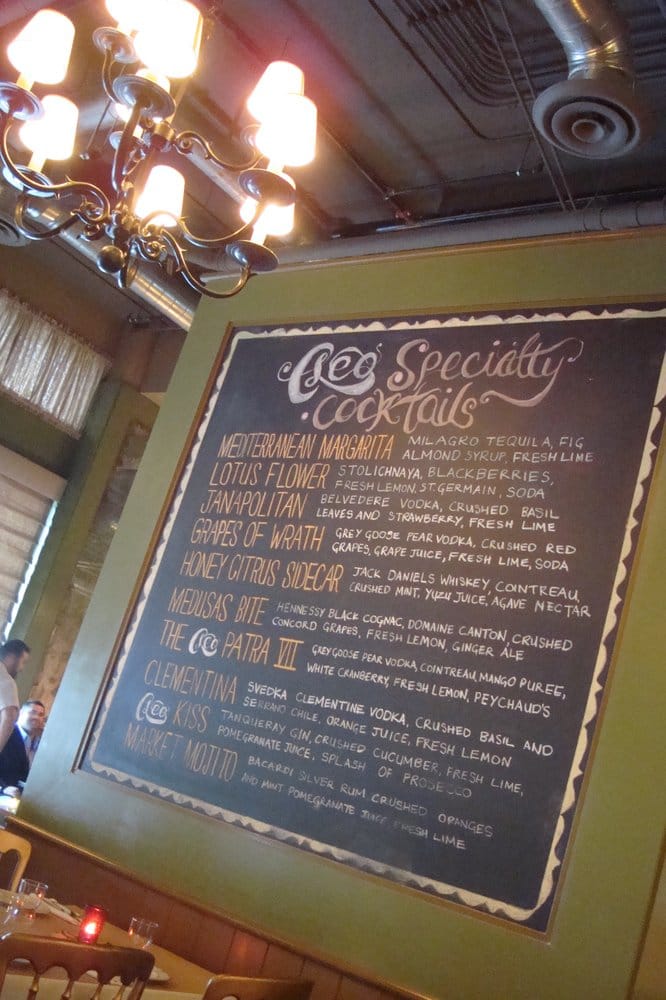 Cleo Specialty
Cocktails
MEDITERRANEAN MARGARITA MILAGRO TEQUILA, FIG
ALMOND SYRUP, FRESH LIME
LOTUS FLOWER STOLICHNAYA, BLACKBERRIES,
FRESH LEMON, ST. GERMAIN, SODA
JANAPOLITAN BELVEDERE VODKA, CRUSHED BASIL
LEAVES AND STRAWBERRY, FRESH LIME
GRAPES OF WRATH GREY GOOSE PEAR VODKA, CRUSHED RED
GRAPES, GRAPE JUICE, FRESH LIME, SODA
HONEY CITRUS SIDECAR JACK DANIELS WHISKEY, COINTREAU,
CRUSHED MINT, YUZU JUICE, AGAVE NECTAR
MEDUSAS BITE HENNESSY BLACK COGNAC, DOMAINE CANTON, CRUSHED
CONCORD GRAPES, FRESH LEMON, GINGER ALE
THE Cleo PATRA VII GREY GOOSE PEAR VODKA, COINTREAU, MANGO PUREE,
WHITE CRANBERRY, FRESH LEMON, PEYCHAUD'S
CLEMENTINA SVEDKA CLEMENTINE VODKA, CRUSHED BASIL AND
SERRANO CHILE, ORANGE JUICE, FRESH LEMON
Cleo KISS TANQUERAY GIN, CRUSHED CUCUMBER, FRESH LIME,
POMEGRANATE JUICE, SPLASH OF PROSECCO
MARKET MOJITO BACARDI SILVER RUM CRUSHED ORANGES
AND MINT POMEGRANATE JUICE FRESH LIME